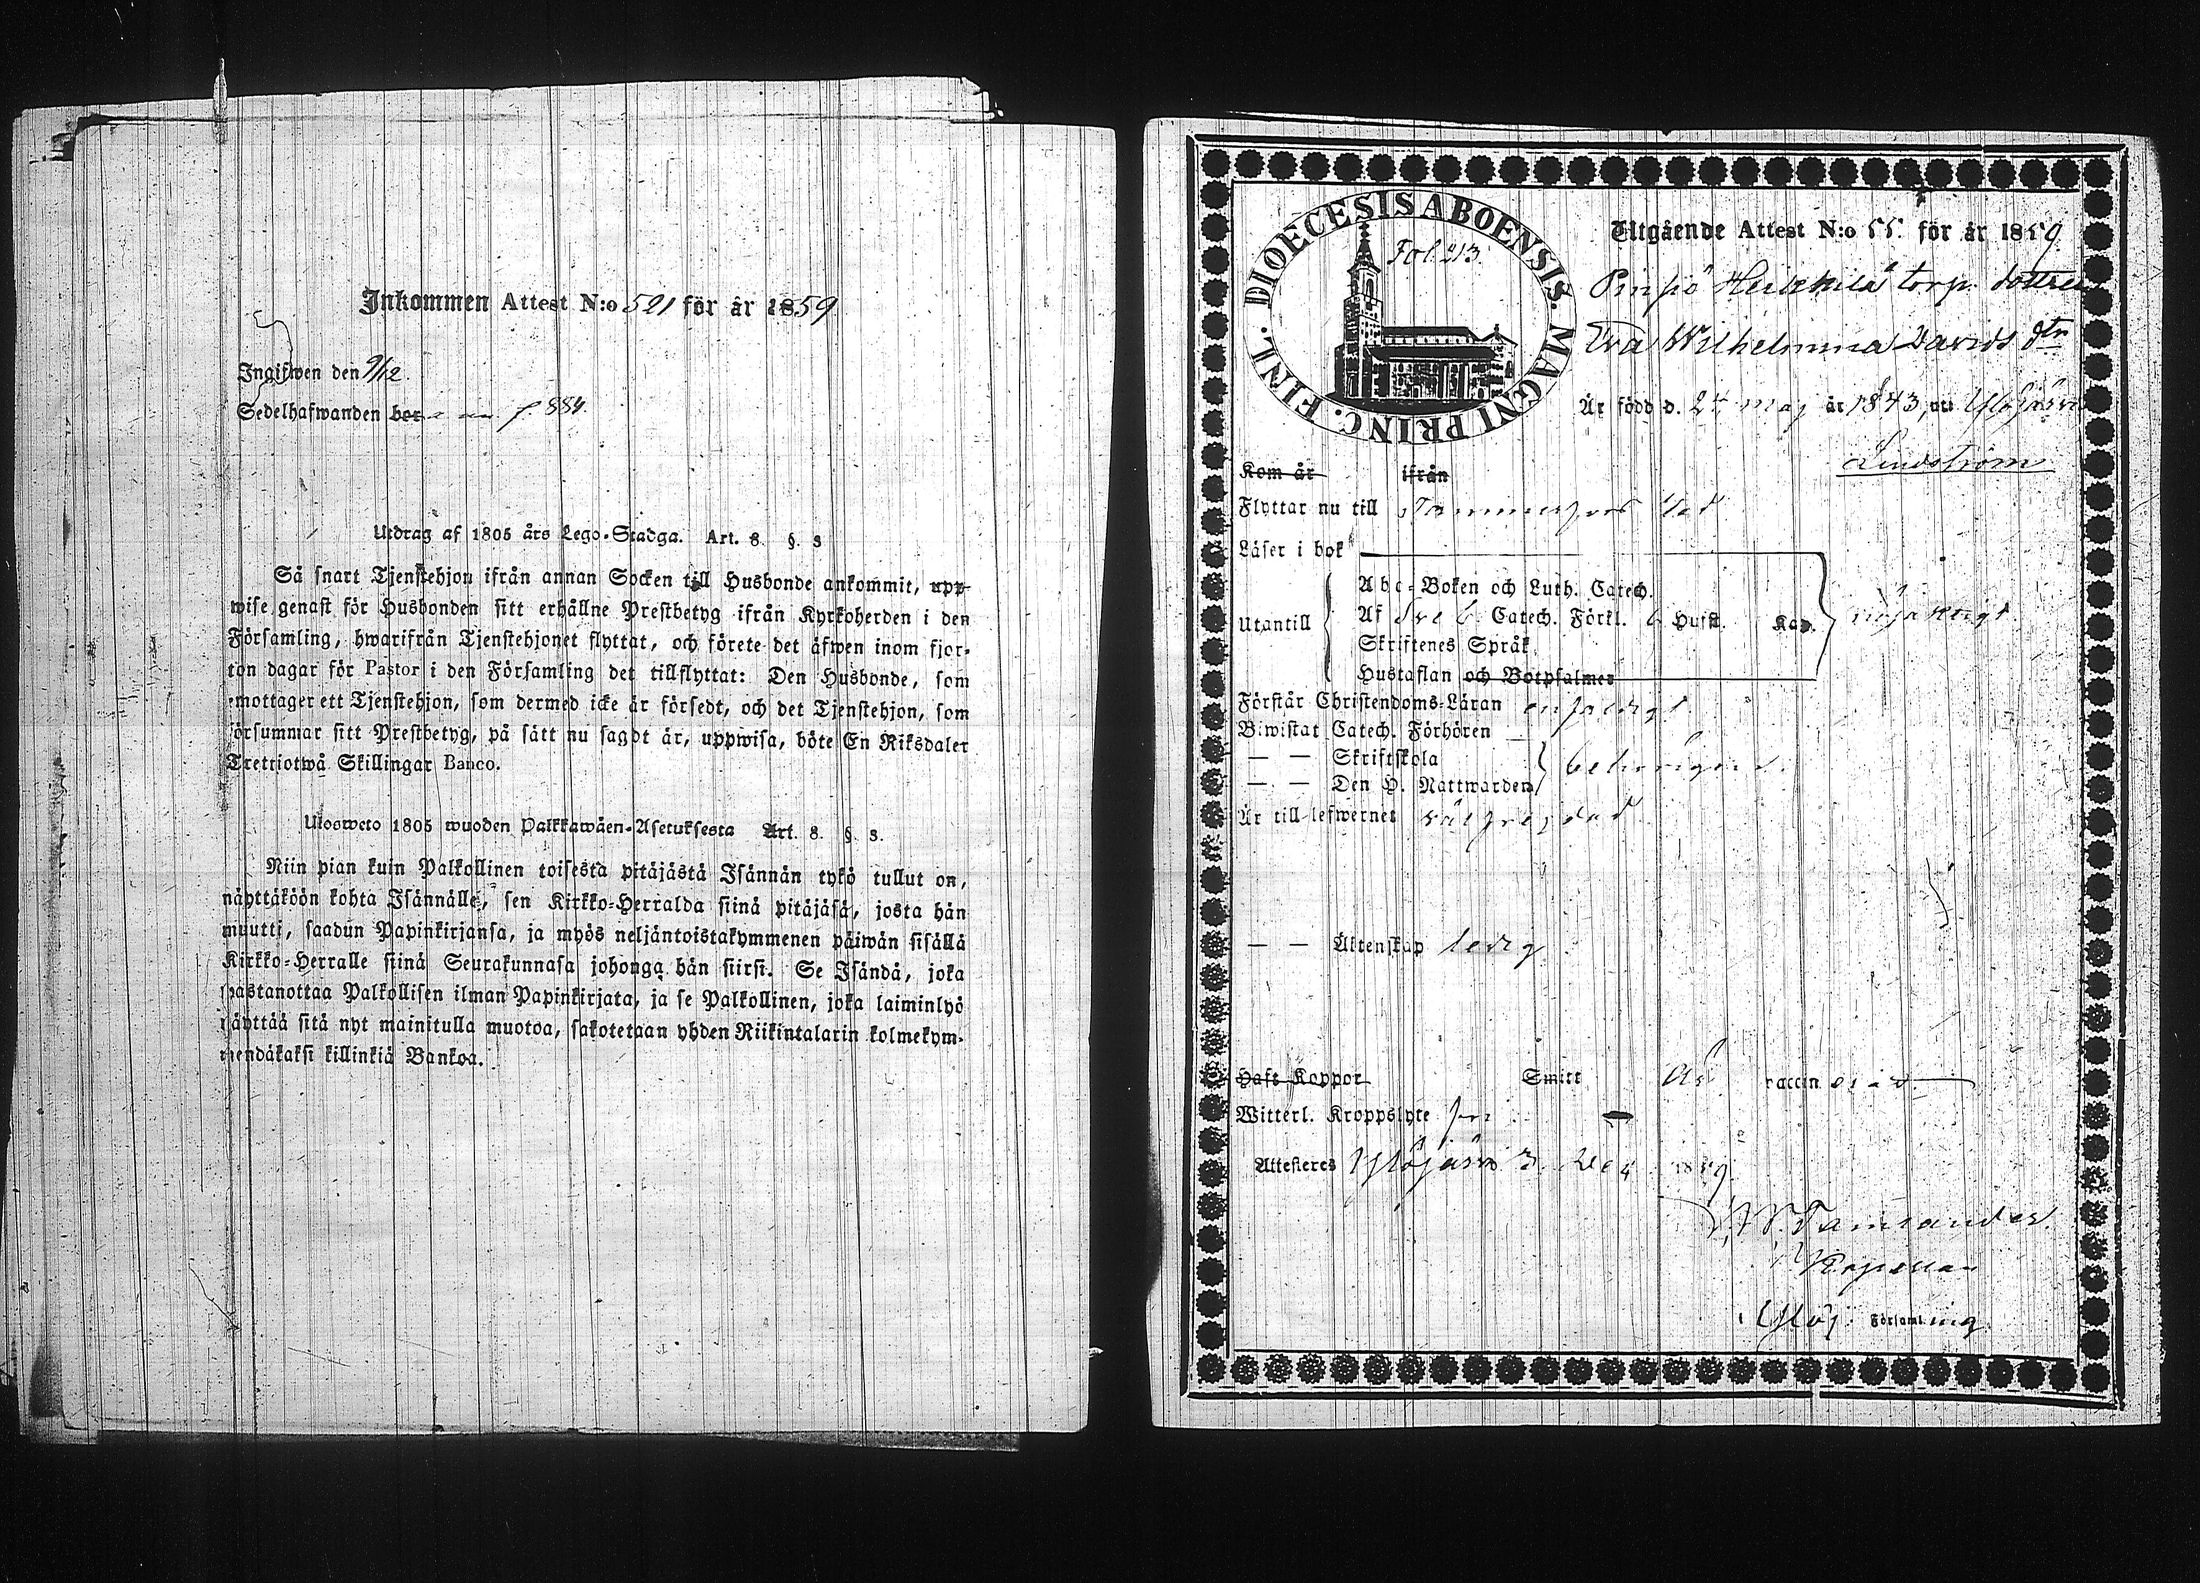 Inkommen Attest N:o 521 för år 1859
Ingifwen den 9/12.
Sedelhafwanden bor p 884.
Utdrag af 1805 års Lego-Stadga. Art. 8. §. 3
Så snart Tjenstehjon ifrån annan Socken till Husbonde ankommit, upp-
wise genast för Husbonden sitt erhållne Prestbetyg ifrån Kyrkoherden i den
Församling, hwarifrån Tjenstehjonet flyttat, och förete det äfwen inom fjor-
ton dagar för Pastor i den Församling det tillflyttat: Den Husbonde, som
emottager ett Tjenstehjon, som dermed icke är försedt, och det Tjenstehjon, som
försummar sitt Prestbetyg, på sätt nu sagdt är, uppwisa, böte En Riksdaler
Trettiotwå Skillingar Banco.
Ulosweto 1805 wuoden Palkkawäen-Asetuksesta Art. 8. §. 3.
Niin pian kuin Palkollinen toisesta pitäjästä Isännän tykö tullut on,
näyttäköön kohta Isännälle, sen Kirkko-Herralda siinä pitäjäsä, josta hän
muutti, saadun Papinkirjansa, ja myös neljäntoistakymmenen päiwän sisällä
Kirkko-Herralle siinä Seurakunnasa johonga hän siirsi. Se Isändä, joka
wastanottaa Palkollisen ilman Papinkirjata, ja se Palkollinen, joka laiminlyö
näyttää sitä nyt mainitulla muotoa, sakotetaan yhden Riikintalarin kolmekym-
mendäkaksi killinkiä Bankoa.
DIOECESIS ABOENSIS. MAGNI PRINC. FINL.
Fol. 213.
Utgående Attest N:o 55. för år 1859
Pinsiö Heikkilä torp. dottren
Eva Wilhelmina Davids dtr
Är född d. 24 maj år 1843, uti Ylöjärvi
Lindström
Kom år ifrån
Flyttar nu till Tammerfors stad
Läser i bok
Utantill
Abc-Boken och Luth. Catech.
Af Sve b. Catech. Förkl. 6 Hufst. Kap.
Skriftenes Språk
Hustaflan och Botpsalmer
nöjaktigt
Förstår Christendoms-Läran enfaldigt
Biwistat Catech. Förhören
— — Skriftskola
— — Den H. Nattwarden
behörigen.
Är till lefwernet wälfrejdad
— — Äktenskap ledig
Haft Koppor Smitt Är vaccinerad
Witterl. Kroppslyte fri
Attesteres Ylöjärvi 3 Dec 1859
Tamlander.
Kapellan
Ylöj. Församling